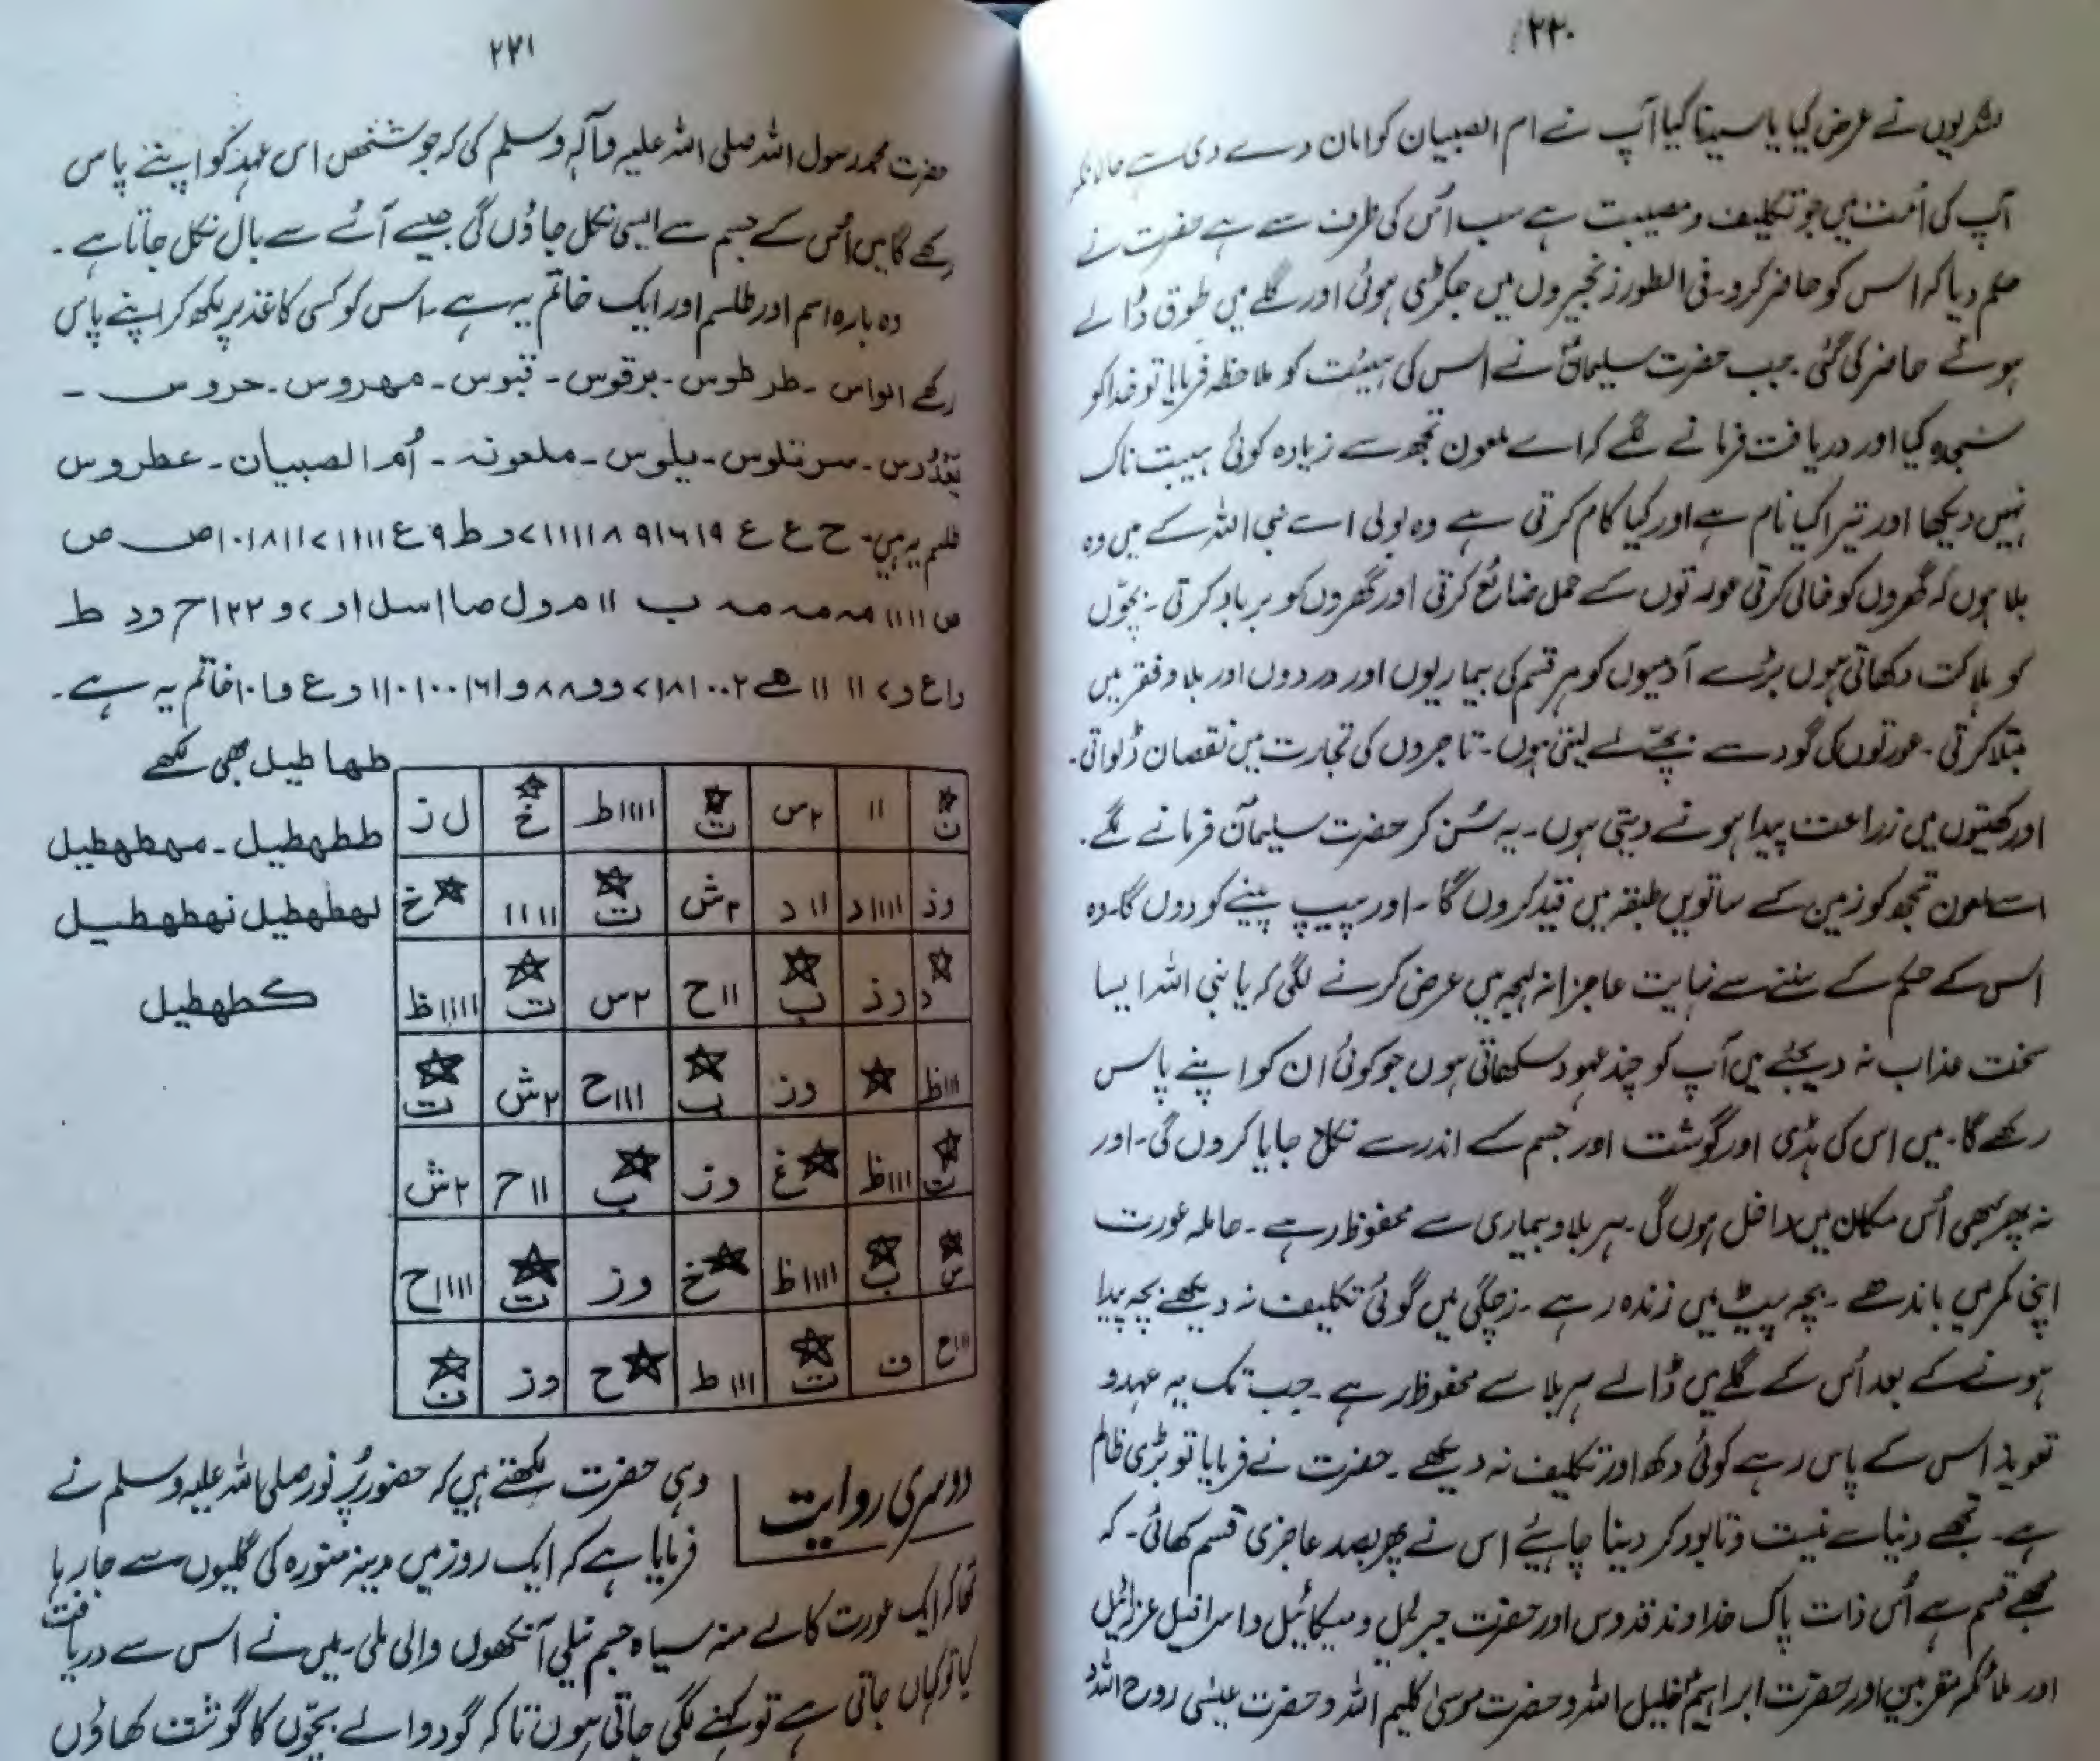 ۲۲۰
نے عرض کیا یا سیدنا کیا آپ نے ام الصبیان کو امان دے دی ہے حالانکہ
آپ کی اُمت میں جو تکلیف و مصیبت ہے سب اُس کی طرف سے ہے حضرت نے
حکم دیا کہ اس کو حاضر کرو۔ فی الطور زنجیروں میں جکڑی ہوئی اور گلے میں طوق ڈالے
ہوئے حاضر کی گئی۔ جب حضرت سلیمانؑ نے اس کی ہیئت کو ملاحظہ فرمایا تو خدا کو
سجدہ کیا اور دریافت فرمانے لگے کہ اے ملعون تجھ سے زیادہ کوئی ہیبت ناک
نہیں دیکھا اور تیرا کیا نام ہے اور کیا کام کرتی ہے وہ بولی اے نبی اللہ کے میں وہ
بلا ہوں کہ گھروں کو خالی کرتی عورتوں کے حمل ضائع کرتی اور گھروں کو برباد کرتی۔ بچوّں
کو ہلاکت دکھاتی ہوں بڑے آدمیوں کو ہر قسم کی بیماریوں اور دردوں اور بلا و فقر میں
مبتلا کرتی۔ عورتوں کی گود سے بچّے لے لیتی ہوں۔ تاجروں کی تجارت میں نقصان ڈلواتی۔
اور کھیتوں میں زراعت پیدا ہونے دیتی ہوں۔ یہ سُن کر حضرت سلیمانؑ فرمانے لگے۔
اے ملعون تجھ کو زمین کے ساتویں طبقہ میں قید کروں گا۔ اور پیپ پینے کو دوں گا۔ وہ
اس کے حکم کے سننے سے نہایت عاجزانہ لہجہ میں عرض کرنے لگی کہ یا نبی اللہ ایسا
سخت عذاب نہ دیجئے میں آپ کو چند عہود سکھاتی ہوں جو کوئی ان کو اپنے پاس
رکھے گا۔ میں اس کی ہڈی اور گوشت اور جسم کے اندر سے نکل جایا کروں گی۔ اور
نہ پھر کبھی اُس مکان میں داخل ہوں گی۔ ہر بلا و بیماری سے محفوظ رہے۔ حاملہ عورت
اپنی کمر میں باندھے۔ بچہ پیٹ میں زندہ رہے۔ زچگی میں کوئی تکلیف نہ دیکھے بچہ پیدا
ہونے کے بعد اُس کے گلے میں ڈالے ہر بلا سے محفوظ رہے۔ جب تک یہ عہد و
تعویذ اس کے پاس رہے کوئی دکھ اور تکلیف نہ دیکھے۔ حضرت نے فرمایا تو بڑی ظالم
ہے۔ تجھے دنیا سے نیست و نابود کر دینا چاہئیے اس نے پھر بصد عاجزی قسم کھائی۔ کہ
مجھے قسم ہے اُس ذات پاک خداوند قدوس اور حضرت جبرئیل و میکائیل و اسرافیل عزرائیل
اور ملائکہ مقربین اور حضرت ابراہیمؑ خلیل اللہ و حضرت موسیٰ کلیم اللہ و حضرت عیسٰی روح اللہ و
۲۲۱
حضرت محمد رسول اللہ صلی اللہ علیہ وآلہ وسلم کی کہ جو شخص اس عہد کو اپنے پاس
رکھے گا میں اُس کے جسم سے ایسی نکل جاؤں گی جیسے آٹے سے بال نکل جاتا ہے۔
وہ بارہ اسم اور طلسم اور ایک خاتم یہ ہے۔ اس کو کسی کاغذ پر لکھ کر اپنے پاس
رکھے الواس۔ طرطوس۔ برقوس۔ قبوس۔ مہروس۔ حروس۔
سرنتلوس۔ یلوس۔ ملعونہ۔ اُم الصبیان۔ عطروس
طلسم یہ ہیں۔ ح ع ع
خاتم یہ ہے۔
طہاطیل بھی لکھے
ططہطیل۔ مہطہطیل
لہطہطیل نہطہطیل
کطہطیل
ت ۱۱ ۲س ت ۱۱۱۱ط خ ل ز
وز ۱۱۱۱د ۱۱د ۲ش ت ۱۱۱۱ خ
د وز ب ۱۱ح ۲س ت ۱۱۱۱ظ
۱۱۱ظ وز ب ۱۱۱ح ۲ش ت
ت ۱۱۱ظ غ وز ب ۱۱ح ۲ش
س ب ۱۱۱۱ظ خ وز ت ۱۱۱۱ح
۱۱۱ح ف ت ۱۱۱ط ح وز ت
دوسری روایت
وہی حضرت لکھتے ہیں کہ حضور پُر نور صلی اللہ علیہ وسلم نے
فرمایا ہے کہ ایک روز میں مدینہ منورہ کی گلیوں سے جا رہا
تھا کہ ایک عورت کالے منہ سیاہ جسم نیلی آنکھوں والی ملی۔ میں نے اس سے دریافت
کیا تو کہاں جاتی ہے تو کہنے لگی جاتی ہوں تاکہ گود والے بچوّں کا گوشت کھاؤں